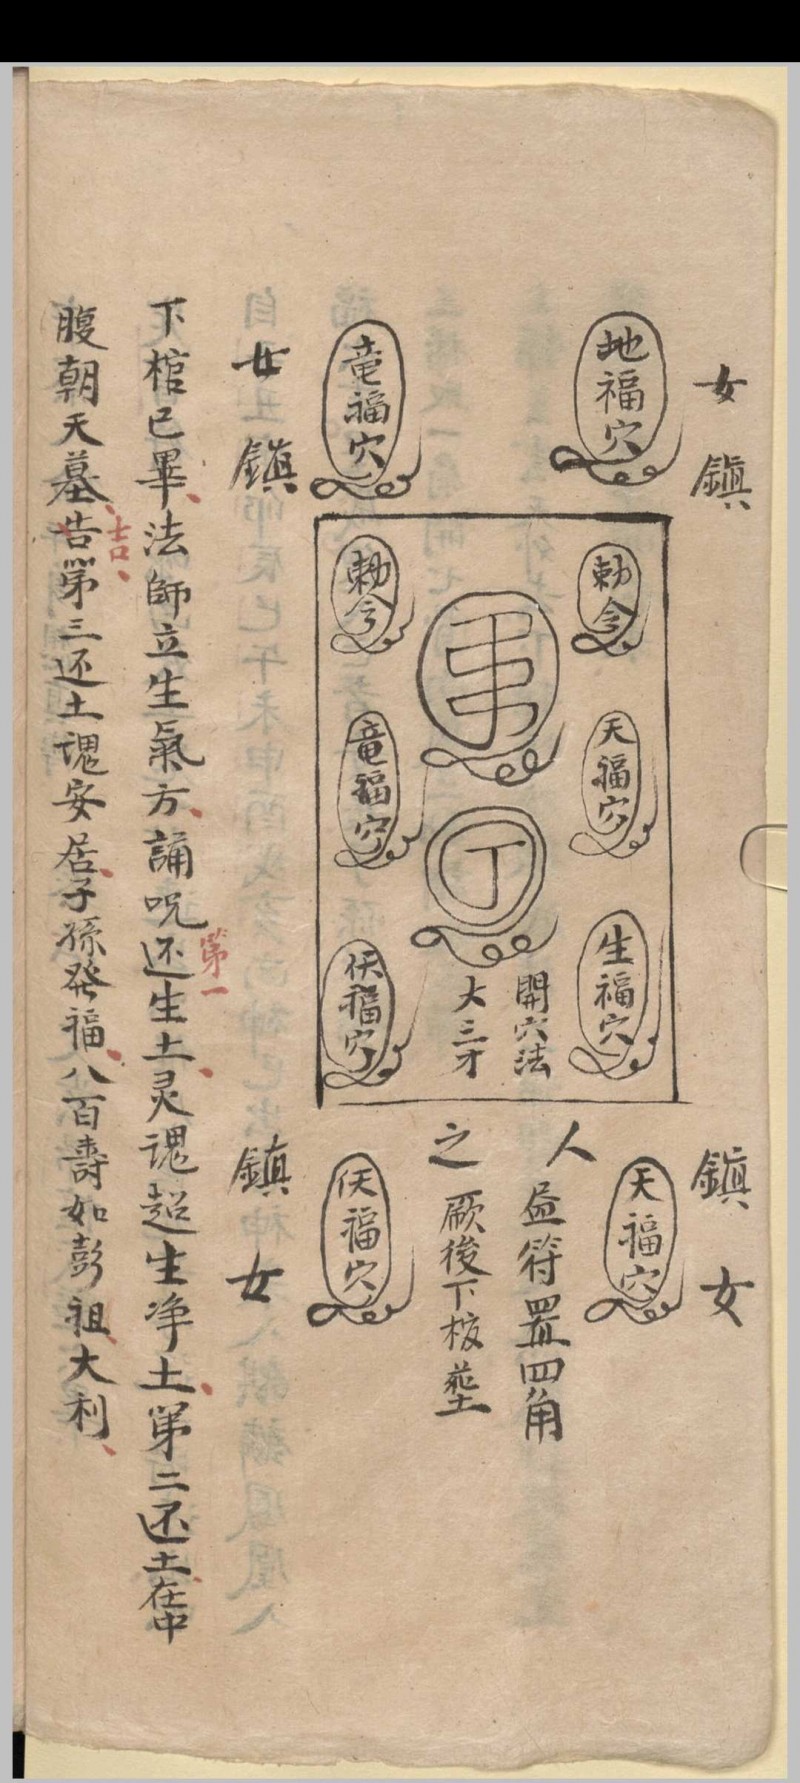 女鎮
鎮女
地福穴
天福穴
勅令
天福穴
生福穴
人
益符置四角
開穴法
大三才
丁
之
厥後下核塟
竜福穴
勅令
竜福穴
伏福穴
伏福穴
女鎮
鎮女
下棺已畢法師立生氣方誦呪第一还生土灵魂超生净土第二还土在中
腹朝天墓告吉第三还土魂安居子孫発福八百壽如彭祖大利